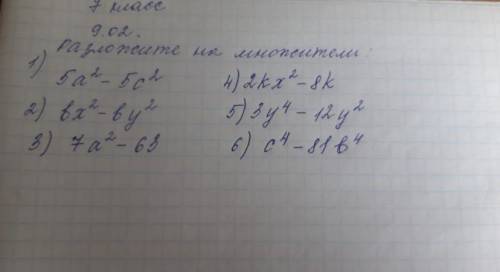 7 класс
9.02.
Разложите на множители:
1) 5a² - 5c²
4) 2kx² - 8k
2) bx² - by²
5) 3y⁴ - 12y²
3) 7a² - 63
6) c⁴ - 81b⁴